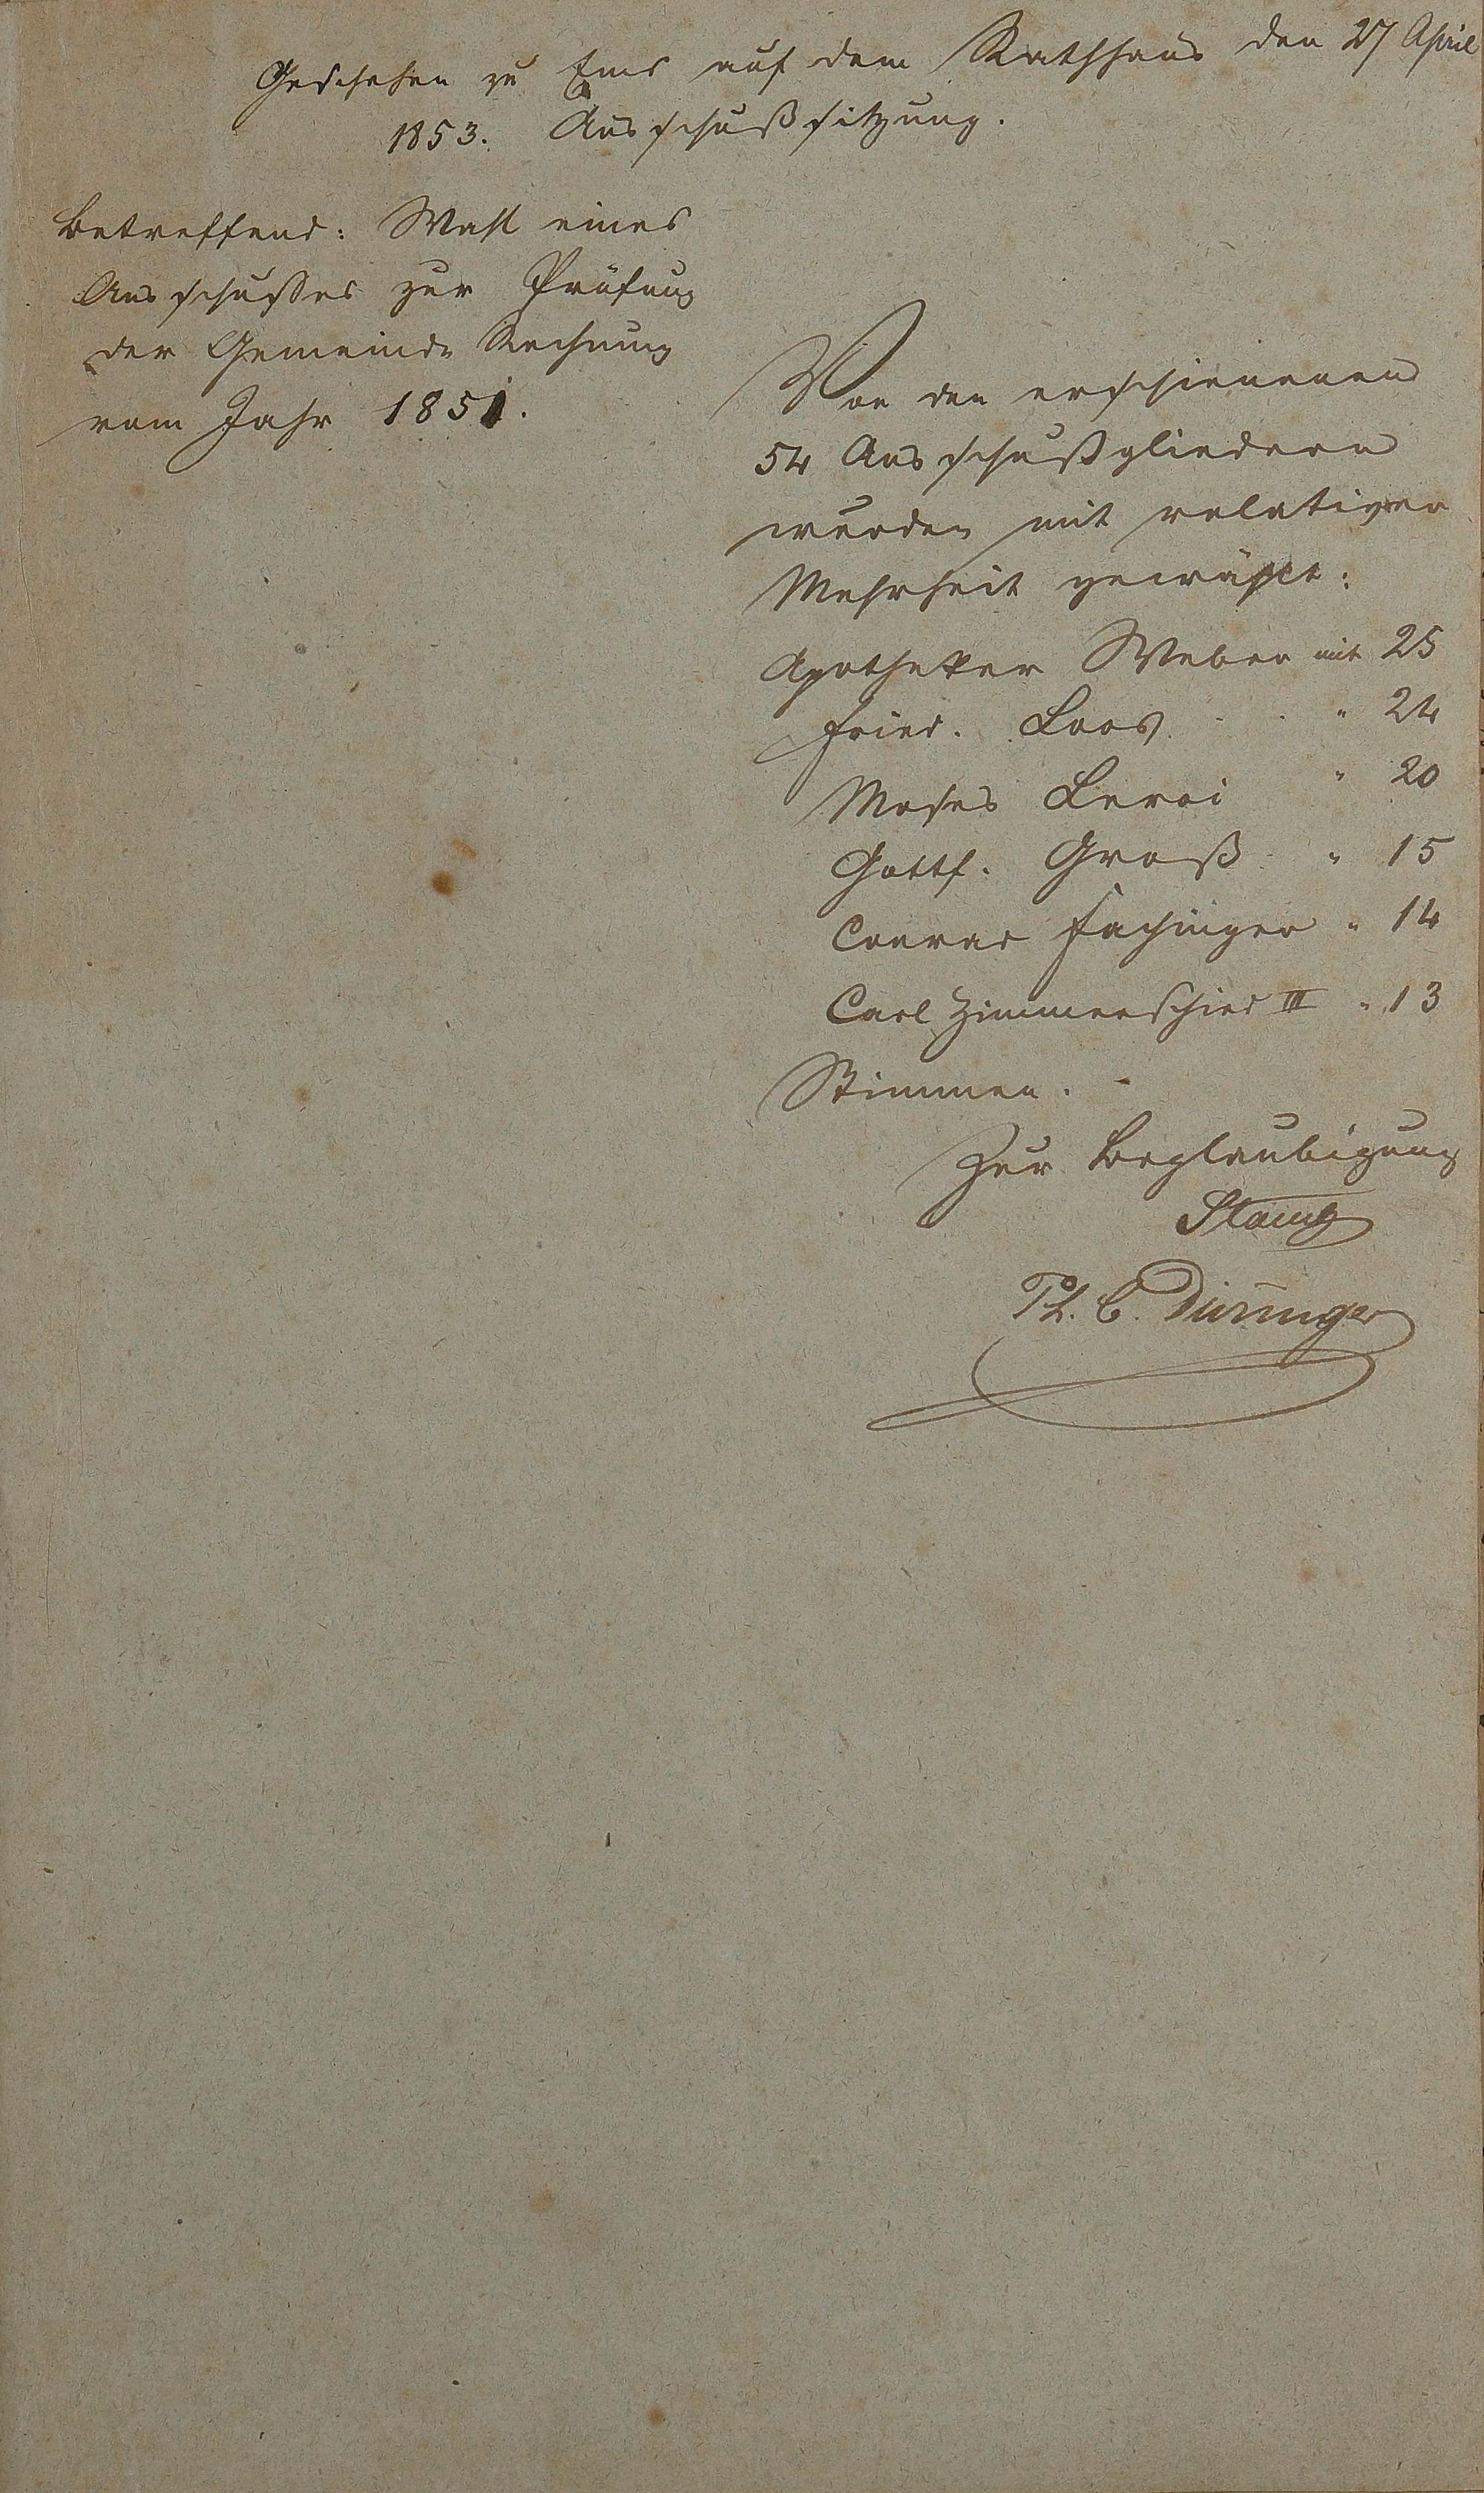 Geschehen zu Ems auf dem Rathhaus den 27 April
1853. Ausschußsitzung.
Betreffend: Wahl eines
Ausschusses zur Prüfung
der Gemeinde Rechnung
vom Jahr 1851.
Von den erschienenen
54 Ausschußgliedern
wurden mit relativer
Mehrheit gewählt:
Apotheker Weber mit 25
Fried. Loos . . " 24
Moses Leroi " 20
Gottf. Groß " 15
Conrad Fachinger " 14
Carl Zimmerschied III " 13
Stimmen.
Zur Beglaubigung
Ph. C. Düringer